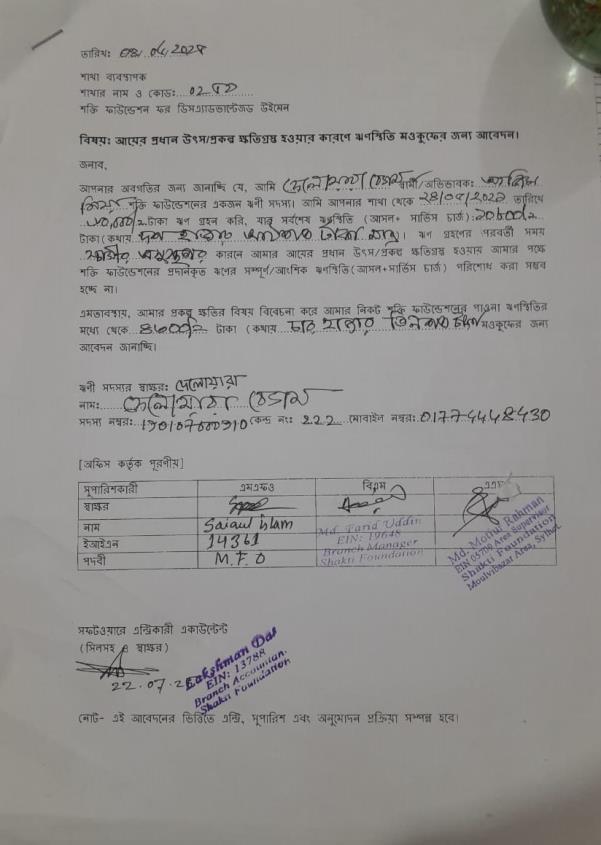 তারিখ:
শাখা ব্যবস্থাপক
শাখার নাম ও কোড:
শক্তি ফাউন্ডেশন ফর ডিসএ্যাডভান্টেজড উইমেন
বিষয়: আয়ের প্রধান উৎস/প্রকল্প ক্ষতিগ্রস্ত হওয়ার কারণে ঋণস্থিতি মওকুফের জন্য আবেদন।
জনাব,
আপনার অবগতির জন্য জানাচ্ছি যে, আমি স্বামী/অভিভাবক:
শক্তি ফাউন্ডেশনের একজন ঋণী সদস্য। আমি আপনার শাখা থেকে তারিখে
টাকা ঋণ গ্রহন করি, যার সর্বশেষ ঋণস্থিতি (আসল+ সার্ভিস চার্জ):
টাকা (কথায় ঋণ গ্রহণের পরবর্তী সময়
কারনে আমার আয়ের প্রধান উৎস/প্রকল্প ক্ষতিগ্রস্ত হওয়ায় আমার পক্ষে
শক্তি ফাউন্ডেশনের প্রদানকৃত ঋণের সম্পূর্ণ/আংশিক ঋণস্থিতি(আসল+সার্ভিস চার্জ) পরিশোধ করা সম্ভব
হচ্ছে না।
এমতাবস্থায়, আমার প্রকল্প ক্ষতির বিষয় বিবেচনা করে আমার নিকট শক্তি ফাউন্ডেশনের পাওনা ঋণস্থিতির
মধ্যে থেকে টাকা (কথায় চার হাজার তিনশত টাকা মওকুফের জন্য
আবেদন জানাচ্ছি।
ঋণী সদস্যর স্বাক্ষর: দেলোয়ারা
নাম: দেলোয়ারা বেগম
সদস্য নম্বর: কেন্দ্র নং: 222 মোবাইল নম্বর: 01774448430
[অফিস কর্তৃক পূরণীয়]
সুপারিশকারী এমএফও বিএম
স্বাক্ষর
নাম Saiful Islam Md. Farid Uddin Md. Motiur Rahman
ইআইএন 14361 EIN: 19648 EIN 05790 Area Supervisor
পদবী M.F.O Branch Manager Shakti Foundation Shakti Foundation
Moulvibazar Area, Sylhet
সফটওয়ারে এন্ট্রিকারী একাউন্টেন্ট
(সিলসহ স্বাক্ষর)
22.07.2
Lakshman Das
EIN: 13788
Branch Accountant
Shakti Foundation
নোট- এই আবেদনের ভিত্তিতে এন্ট্রি, সুপারিশ এবং অনুমোদন প্রক্রিয়া সম্পন্ন হবে।